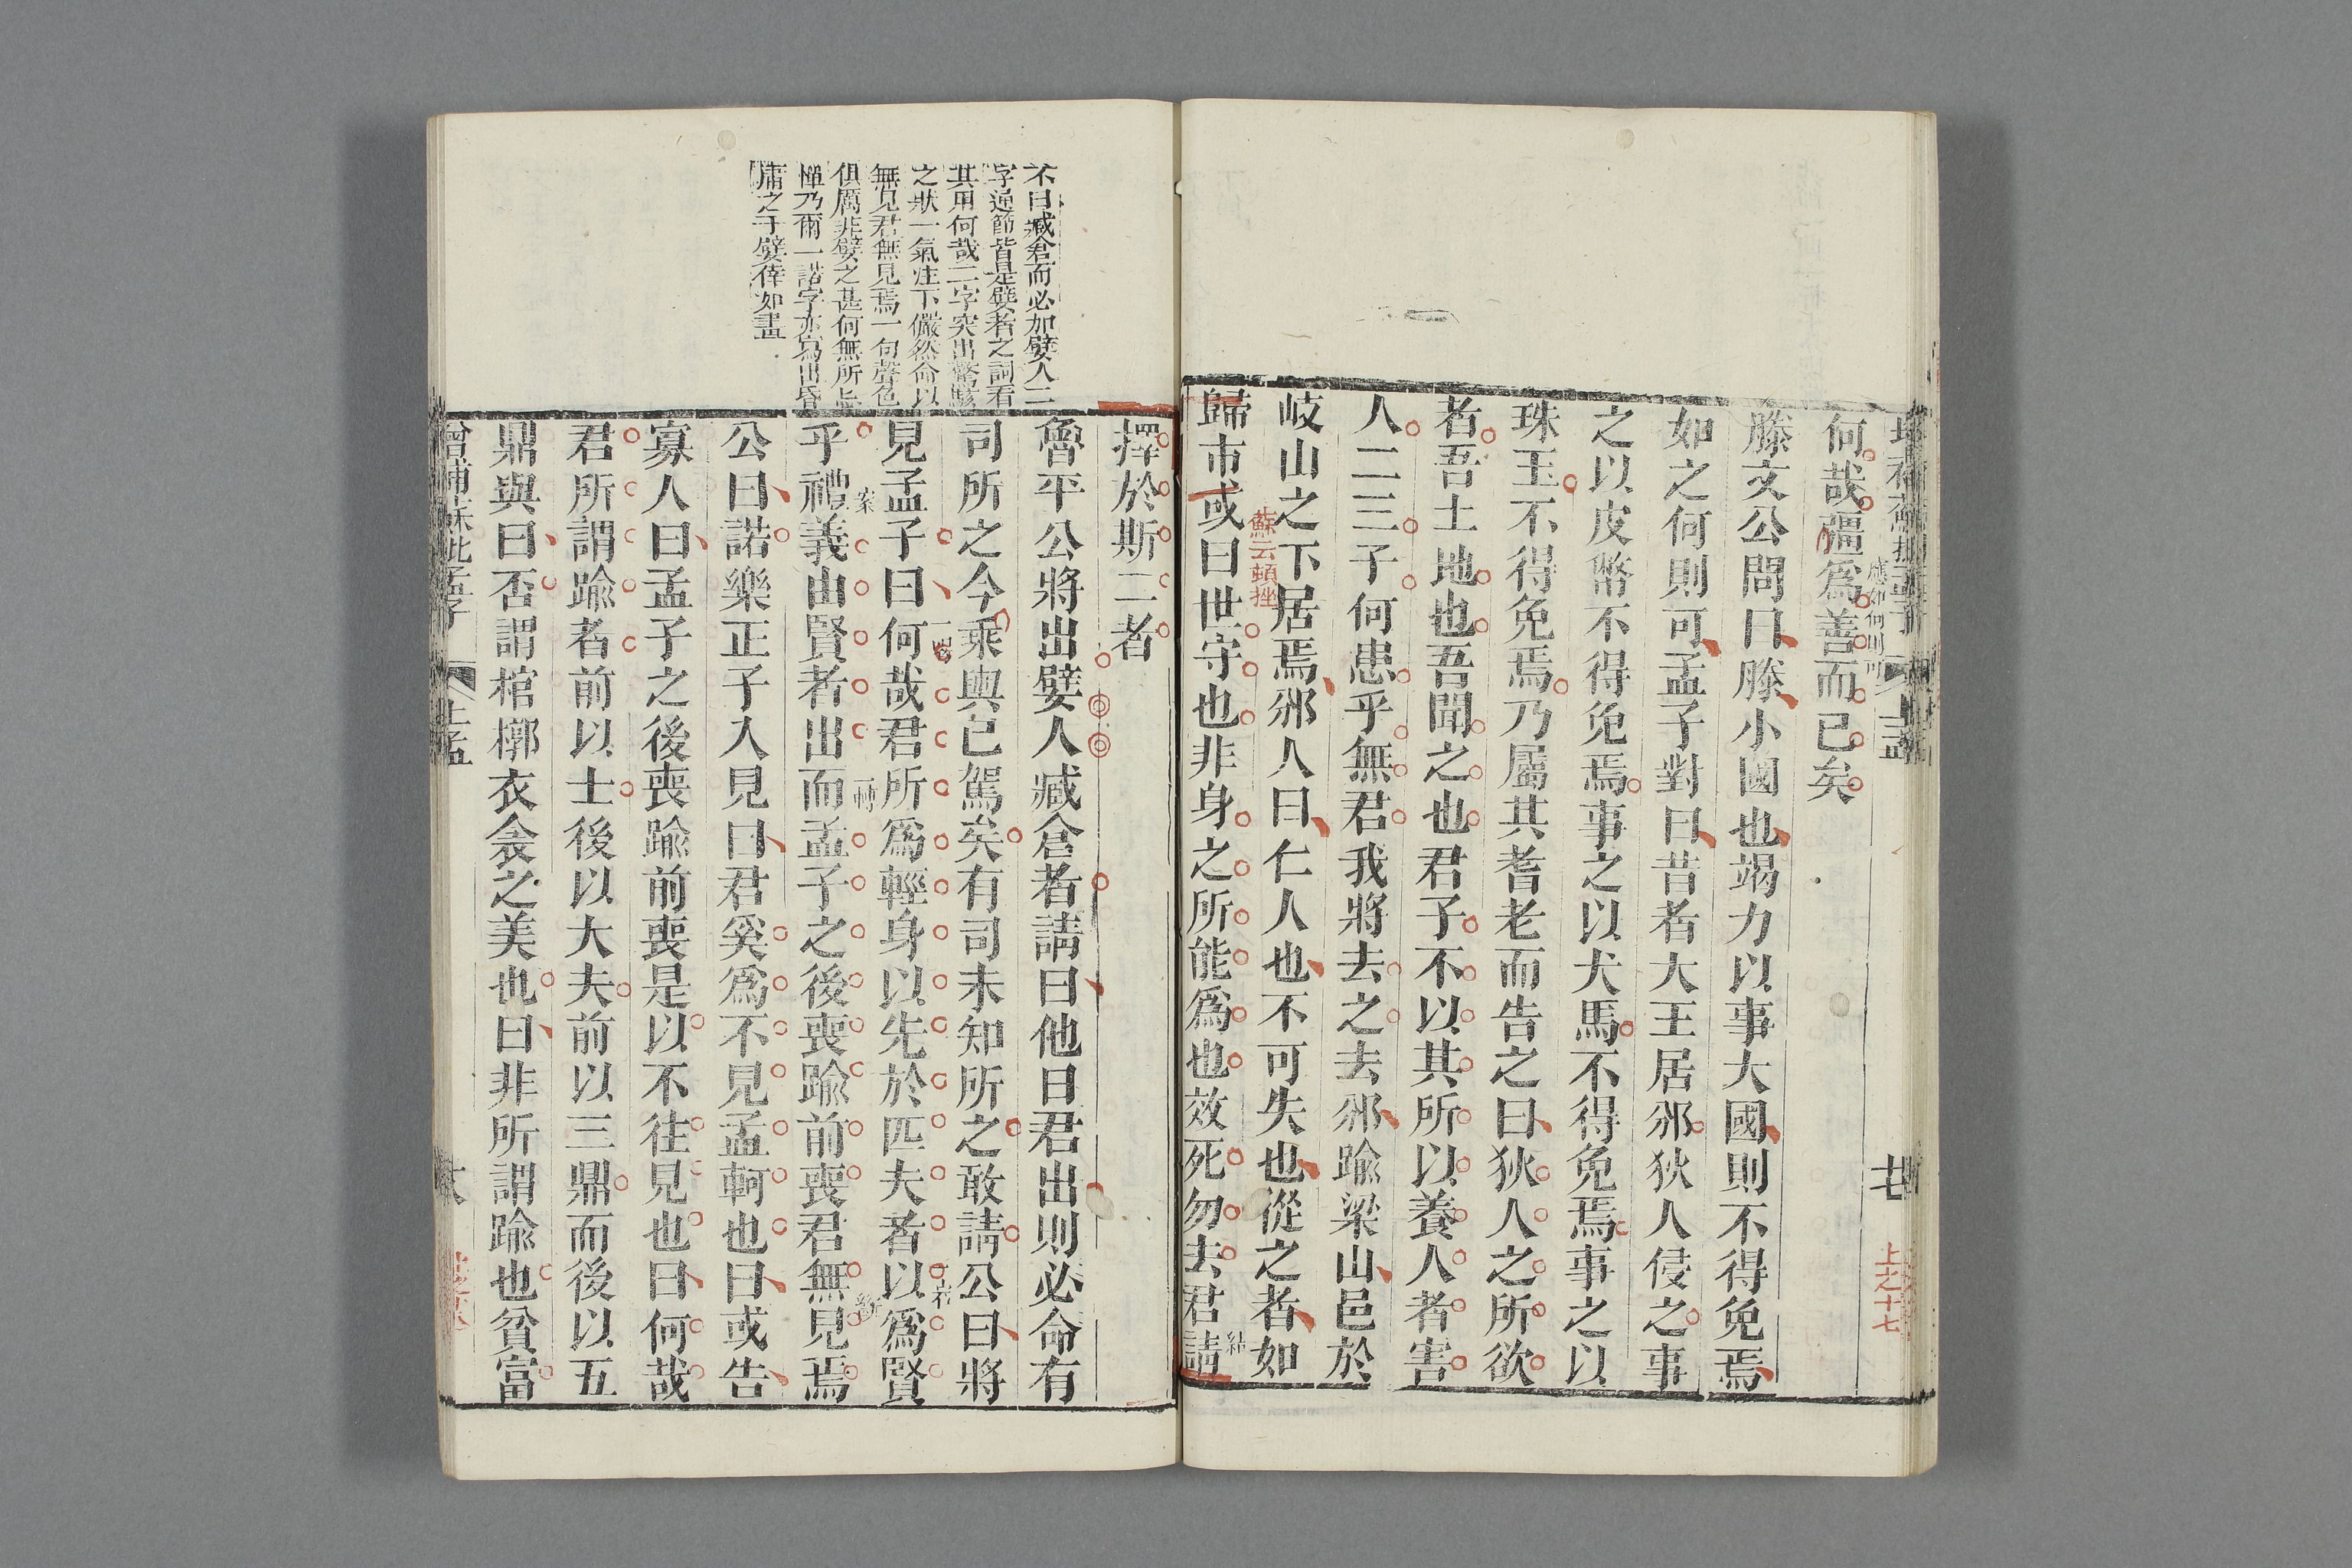 何哉彊為善而已矣
應如何二句
滕文公問曰滕小國也竭力以事大國則不得免焉
如之何則可孟子對曰昔者大王居邠狄人侵之事
之以皮幣不得免焉事之以犬馬不得免焉事之以
珠玉不得免焉乃屬其耆老而告之曰狄人之所欲
者吾土地也吾聞之也君子不以其所以養人者害
人二三子何患乎無君我將去之去邠踰梁山邑於
岐山之下居焉邠人曰仁人也不可失也從之者如
蘇云頓挫
歸市或曰世守也非身之所能為也效死勿去君請
結
上孟
上之十七
不曰臧倉而必加嬖人二
字通節皆是嬖者之詞看
其用何哉二字突出驚駭
之狀一氣注下儼然命以
無見君無見焉一句聲色
俱厲非嬖之甚何無所忌
憚乃爾一諾字亦寫出昏
庸之于嬖倖如畫
擇於斯二者
魯平公將出嬖人臧倉者請曰他日君出則必命有
司所之今乘輿已駕矣有司未知所之敢請公曰將
見孟子曰何哉君所為輕身以先於匹夫者以為賢
乎禮義由賢者出而孟子之後喪踰前喪君無見焉
案
一轉
公曰諾樂正子入見曰君奚為不見孟軻也曰或告
寡人曰孟子之後喪踰前喪是以不往見也曰何哉
君所謂踰者前以士後以大夫前以三鼎而後以五
鼎與曰否謂棺槨衣衾之美也曰非所謂踰也貧富
增補蘇批孟子
上孟